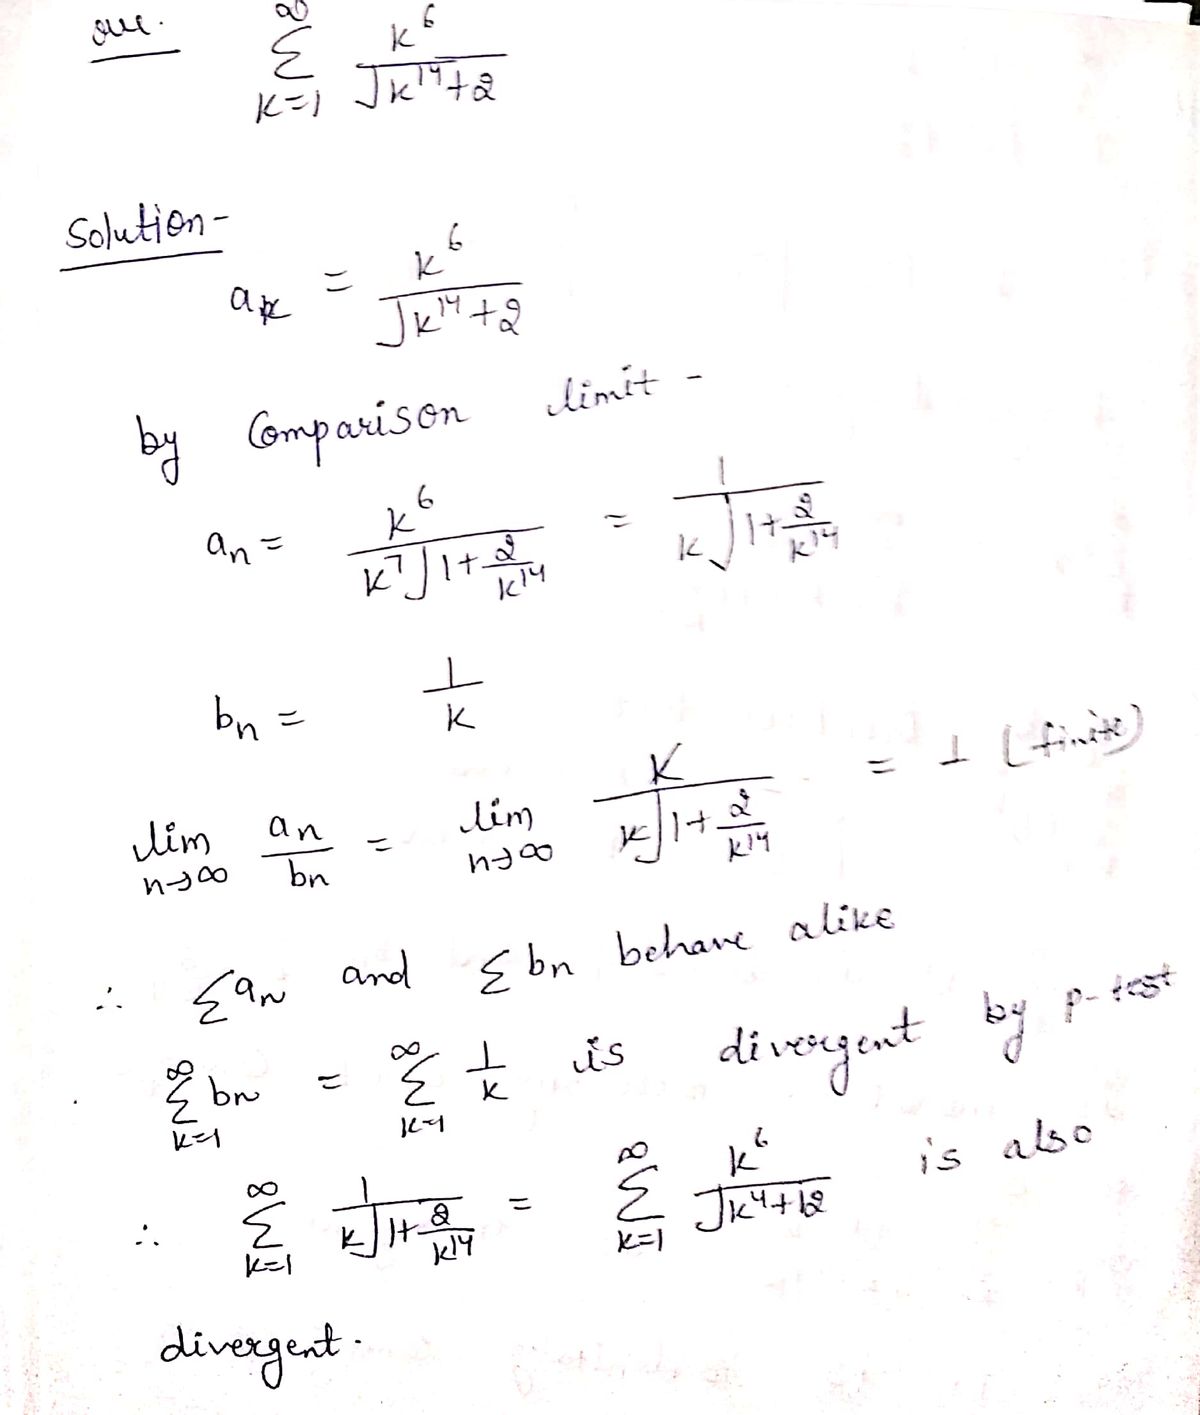 que. ∞∑k=1 k^6/√(k^14+2)
Solution-
a_k = k^6/√(k^14+2)
by Comparison limit -
a_n = k^6/(k^7√(1+2/k^14)) = 1/(k√(1+2/k^14))
b_n = 1/k
lim n→∞ a_n/b_n = lim n→∞ k/(k√(1+2/k^14)) = 1 (finite)
∴ ∑a_n and ∑b_n behave alike
∞∑k=1 b_n = ∞∑k=1 1/k is divergent by p-test
∴ ∞∑k=1 1/(k√(1+2/k^14)) = ∞∑k=1 k^6/√(k^4+12) is also
divergent.